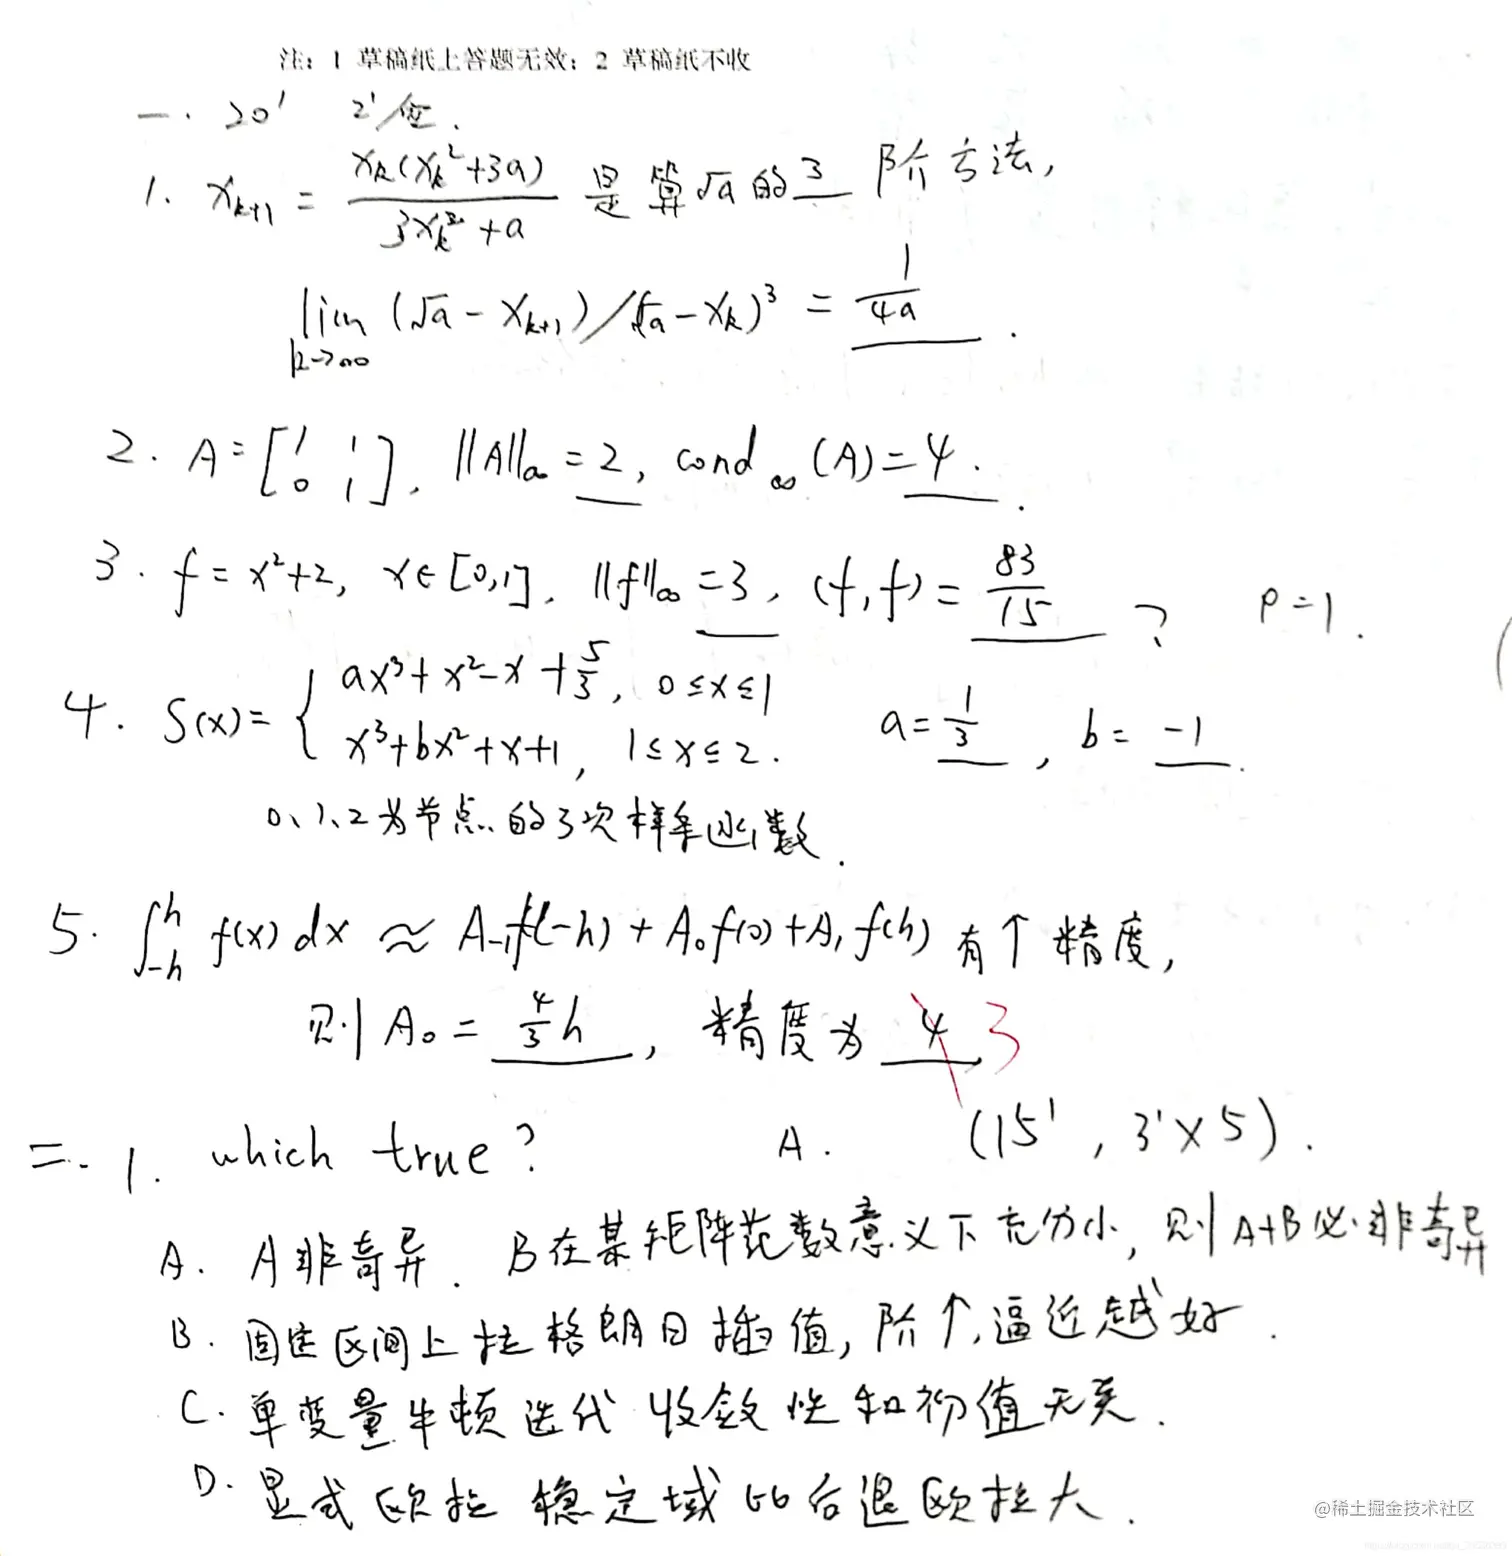 注: 1 草稿纸上答题无效; 2 草稿纸不收
一. 20' 2'/空.
1. x_{k+1} = \frac{x_k(x_k^2+3a)}{3x_k^2+a} 是算√a的 3 阶方法,
lim_{k→∞} (√a - x_{k+1}) / (√a - x_k)^3 = \frac{1}{4a} .
2. A = [1 1; 0 1], ||A||_∞ = 2, cond_∞(A) = 4.
3. f = x²+2, x∈[0,1], ||f||_∞ = 3, (f,f) = \frac{83}{15} ? ρ=1.
4. S(x) = { ax³+x²-x+\frac{5}{3}, 0≤x≤1
x³+bx²+x+1, 1≤x≤2. a = \frac{1}{3}, b = -1.
0、1、2为节点的3次样条函数.
5. ∫_{-h}^{h} f(x)dx ≈ A_{-1}f(-h) + A_0f(0) + A_1f(h) 有↑精度,
则 A_0 = \frac{4}{3}h, 精度为 4 3
二. 1. which true? A. (15', 3'×5).
A. A非奇异. B在某矩阵范数意义下充分小, 则A+B必非奇异
B. 固定区间上拉格朗日插值, 阶↑, 逼近越好.
C. 单变量牛顿迭代收敛性和初值无关.
D. 显式欧拉稳定域比后退欧拉大.
@稀土掘金技术社区